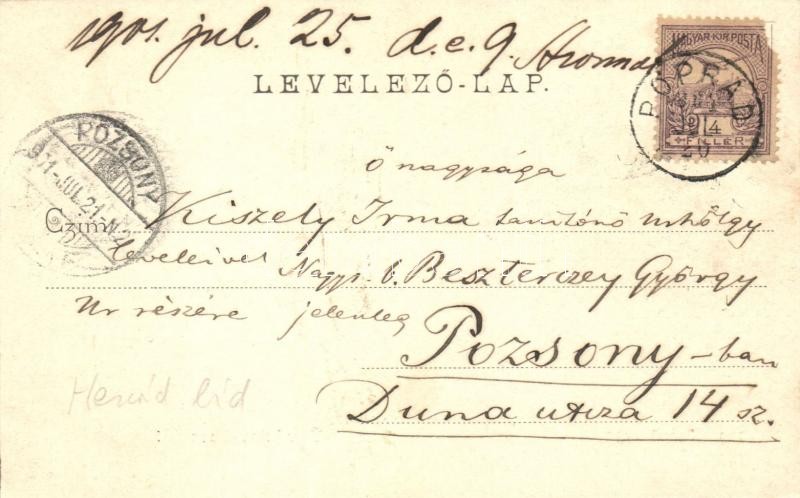 1901. jul. 25. d. e. 9.
LEVELEZŐ-LAP.
MAGYAR KIR. POSTA
4
FILLÉR
POPRÁD
POZSONY
901-JUL.21-N2
Ő nagysága
Czím Kiszely Irma tanítónő úrhölgy
leveleivel Nagys. b. Beszterczey György
Ur részére jelenleg
Pozsony-ban
Duna utcza 14 sz.
Hernád híd